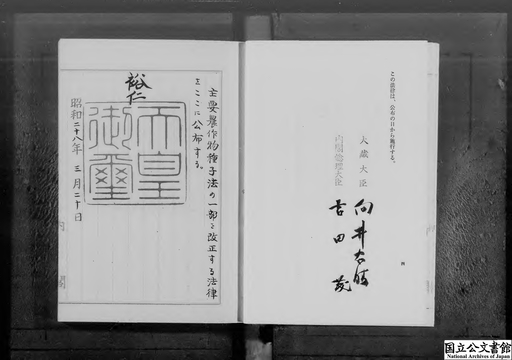 この法律は、公布の日から施行する。
大蔵大臣 向井忠晴
内閣総理大臣 吉田茂
四
主要農作物種子法の一部を改正する法律
をここに公布する。
裕仁
天皇御璽
昭和二十八年三月二十日
内閣
国立公文書館
National Archives of Japan